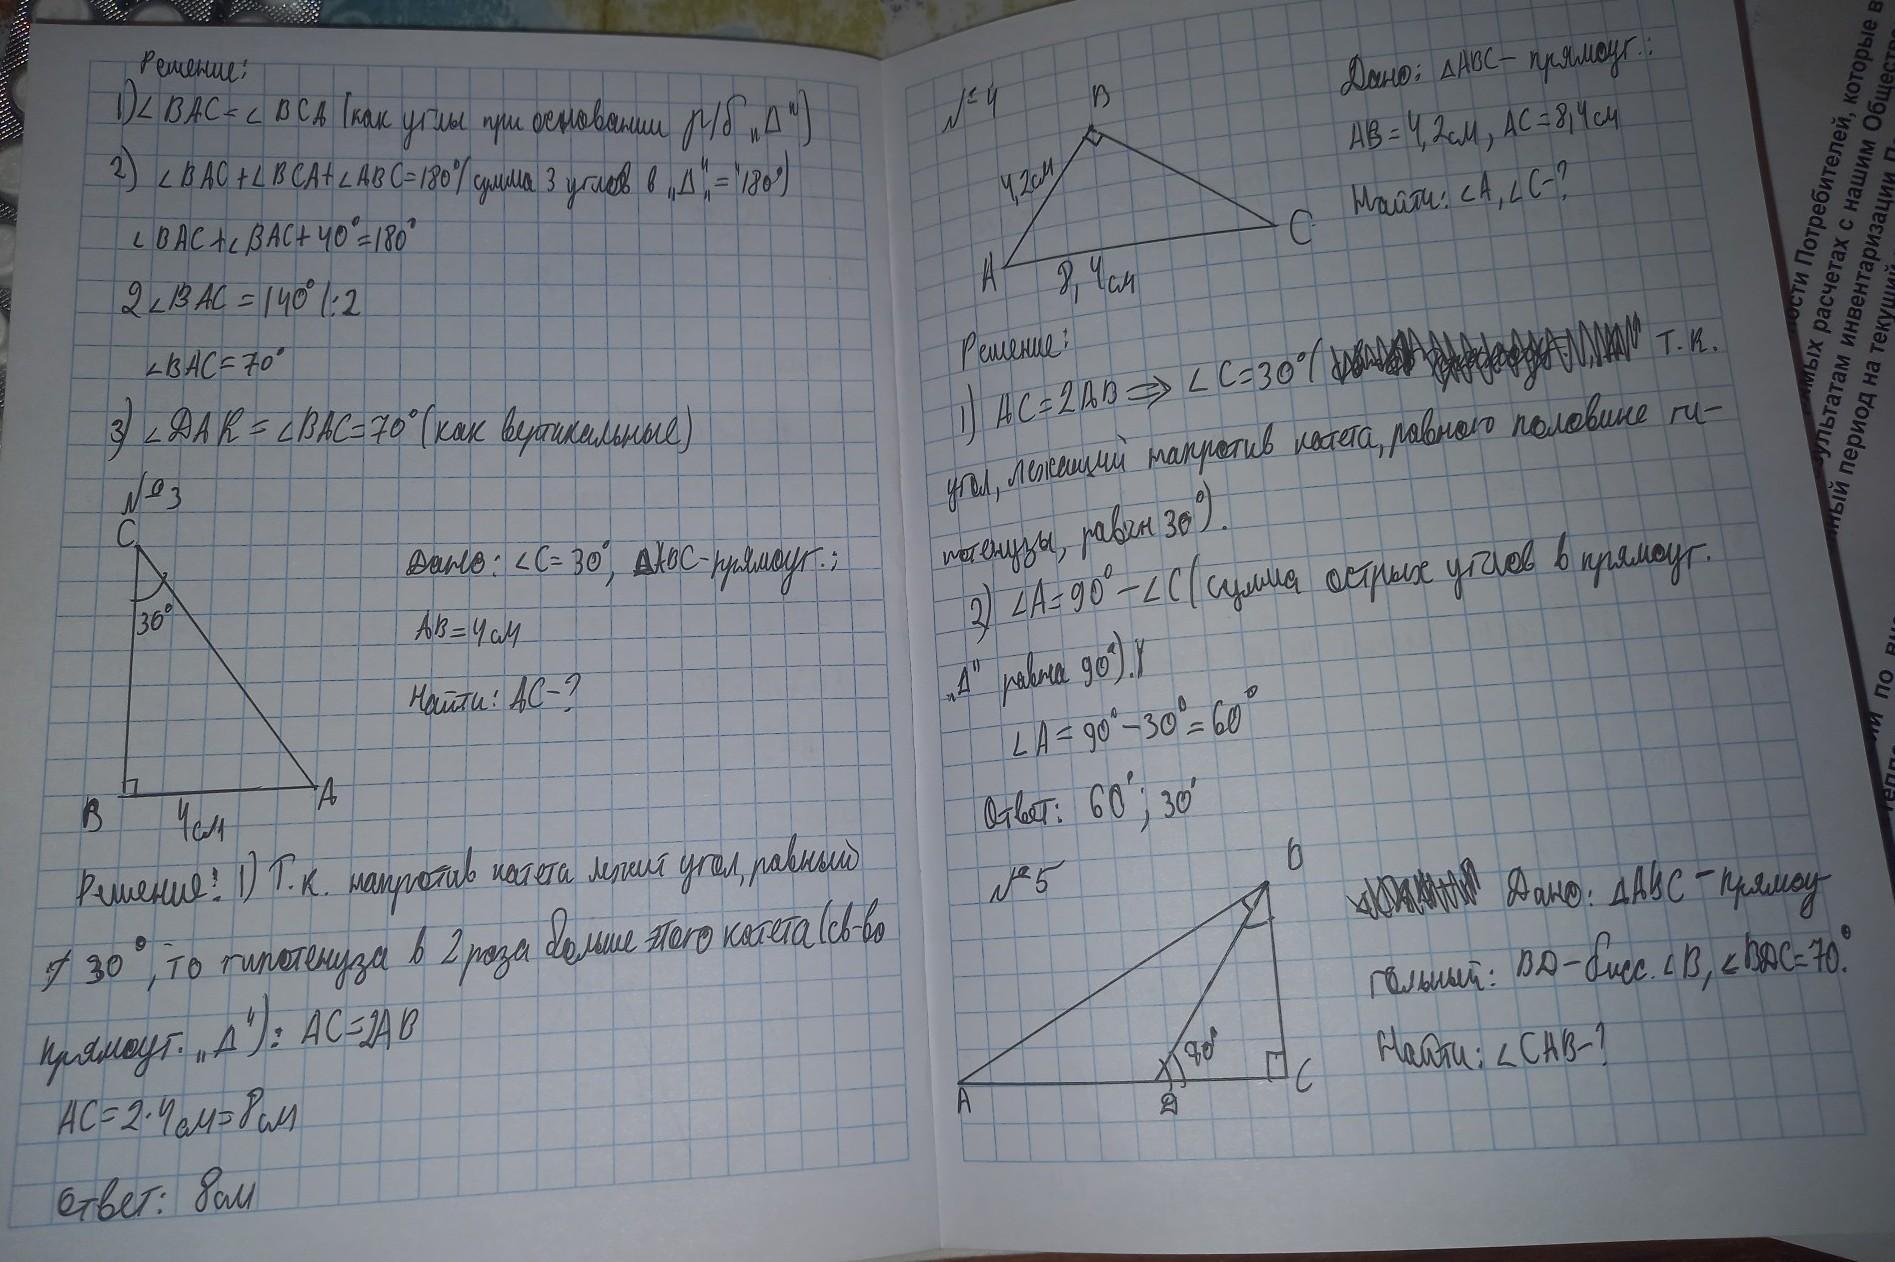 Решение:
1) ∠BAC=∠BCA (как углы при основании р/б „Δ“)
2) ∠BAC+∠BCA+∠ABC=180° (сумма 3 углов в „Δ“=180°)
∠BAC+∠BAC+40°=180°
2∠BAC=140° |:2
∠BAC=70°
3) ∠DAK=∠BAC=70° (как вертикальные)
№3
C
30°
B
A
4см
Дано: ∠C=30°, ΔABC-прямоуг.;
AB=4см
Найти: AC-?
Решение: 1) Т.к. напротив катета лежит угол, равный
30°, то гипотенуза в 2 раза больше этого катета (св-во
прямоуг. „Δ“): AC=2AB
AC=2·4см=8см
Ответ: 8см
№4
B
4,2см
A
8,4см
C
Дано: ΔABC- прямоуг.:
AB=4,2см, AC=8,4см
Найти: ∠A, ∠C-?
Решение:
1) AC=2AB ⇒ ∠C=30° ( т.к.
угол, лежащий напротив катета, равного половине ги-
потенузы, равен 30°).
2) ∠A=90°-∠C (сумма острых углов в прямоуг.
„Δ“ равна 90°).
∠A=90°-30°=60°
Ответ: 60°; 30°
№5
A
D
C
Дано: ΔABC-прямоу-
гольный: BD-бисс. ∠B, ∠BDC=70°.
Найти: ∠CAB-?